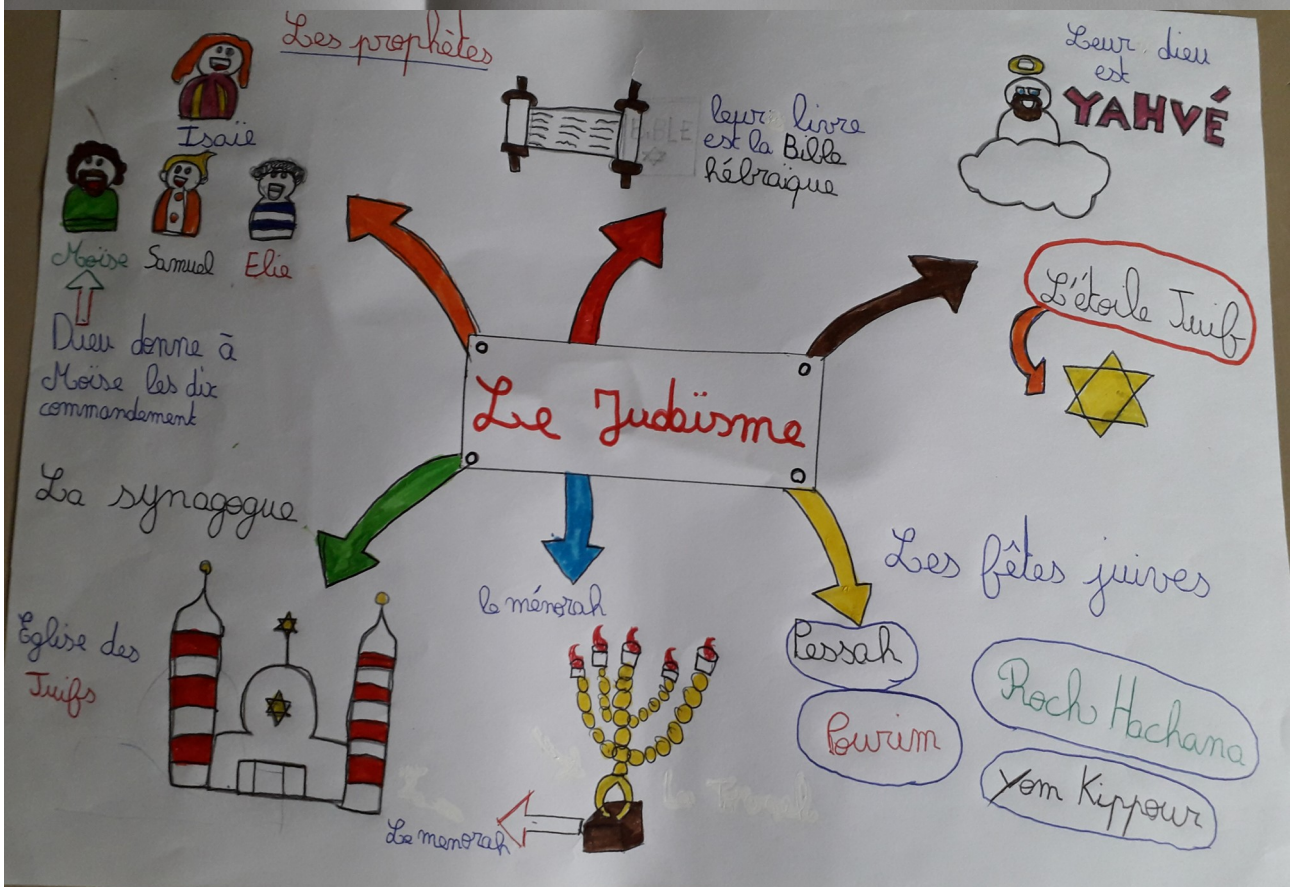 Les prophètes
Isaïe
Moïse
Samuel
Elie
Dieu donne à
Moïse les dix
commandement
BIBLE
leur livre
est la Bible
hébraïque
Leur dieu
est
YAHVÉ
L'étoile Juif
Le Judaïsme
La synagogue
Eglise des
Juifs
le ménorah
Le menorah
Les fêtes juives
Pessah
Pourim
Roch Hachana
Yom Kippour